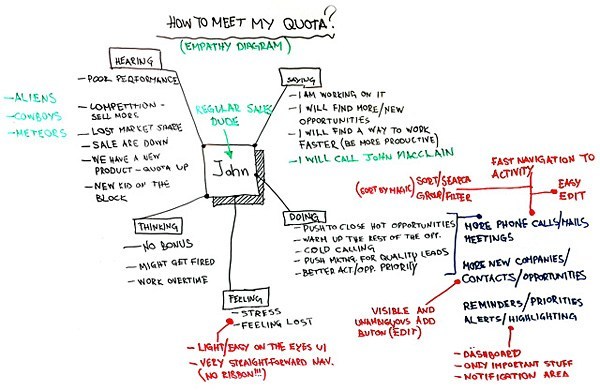 HOW TO MEET MY QUOTA?
(EMPATHY DIAGRAM)
HEARING
- POOR PERFORMANCE
- COMPETITION -
SELL MORE
- LOST MARKET SHARE
- SALE ARE DOWN
- WE HAVE A NEW
PRODUCT - QUOTA UP
- NEW KID ON THE
BLOCK
- ALIENS
- COWBOYS
- METEORS
REGULAR SALES
DUDE
John
SAYING
- I AM WORKING ON IT
- I WILL FIND MORE/NEW
OPPORTUNITIES
- I WILL FIND A WAY TO WORK
FASTER (BE MORE PRODUCTIVE)
- I WILL CALL JOHN MACCLAIN
THINKING
- NO BONUS
- MIGHT GET FIRED
- WORK OVERTIME
DOING
- PUSH TO CLOSE HOT OPPORTUNITIES
- WARM UP THE REST OF THE OPP.
- COLD CALLING
- PUSH MKTNG FOR QUALITY LEADS
- BETTER ACT/OPP. PRIORITY
FEELING
- STRESS
- FEELING LOST
- LIGHT/EASY ON THE EYES UI
- VERY STRAIGHT-FORWARD NAV.
(NO RIBBON!!!)
FAST NAVIGATION TO
ACTIVITY
(SORT BY MAGIC) SORT/SEARCH
GROUP/FILTER
EASY
EDIT
MORE PHONE CALLS/MAILS
MEETINGS
MORE NEW COMPANIES/
CONTACTS/OPPORTUNITIES
REMINDERS/PRIORITIES
ALERTS/HIGHLIGHTING
VISIBLE AND
UNAMBIGUOUS ADD
BUTON (EDIT)
- DASHBOARD
- ONLY IMPORTANT STUFF
- NOTIFICATION AREA